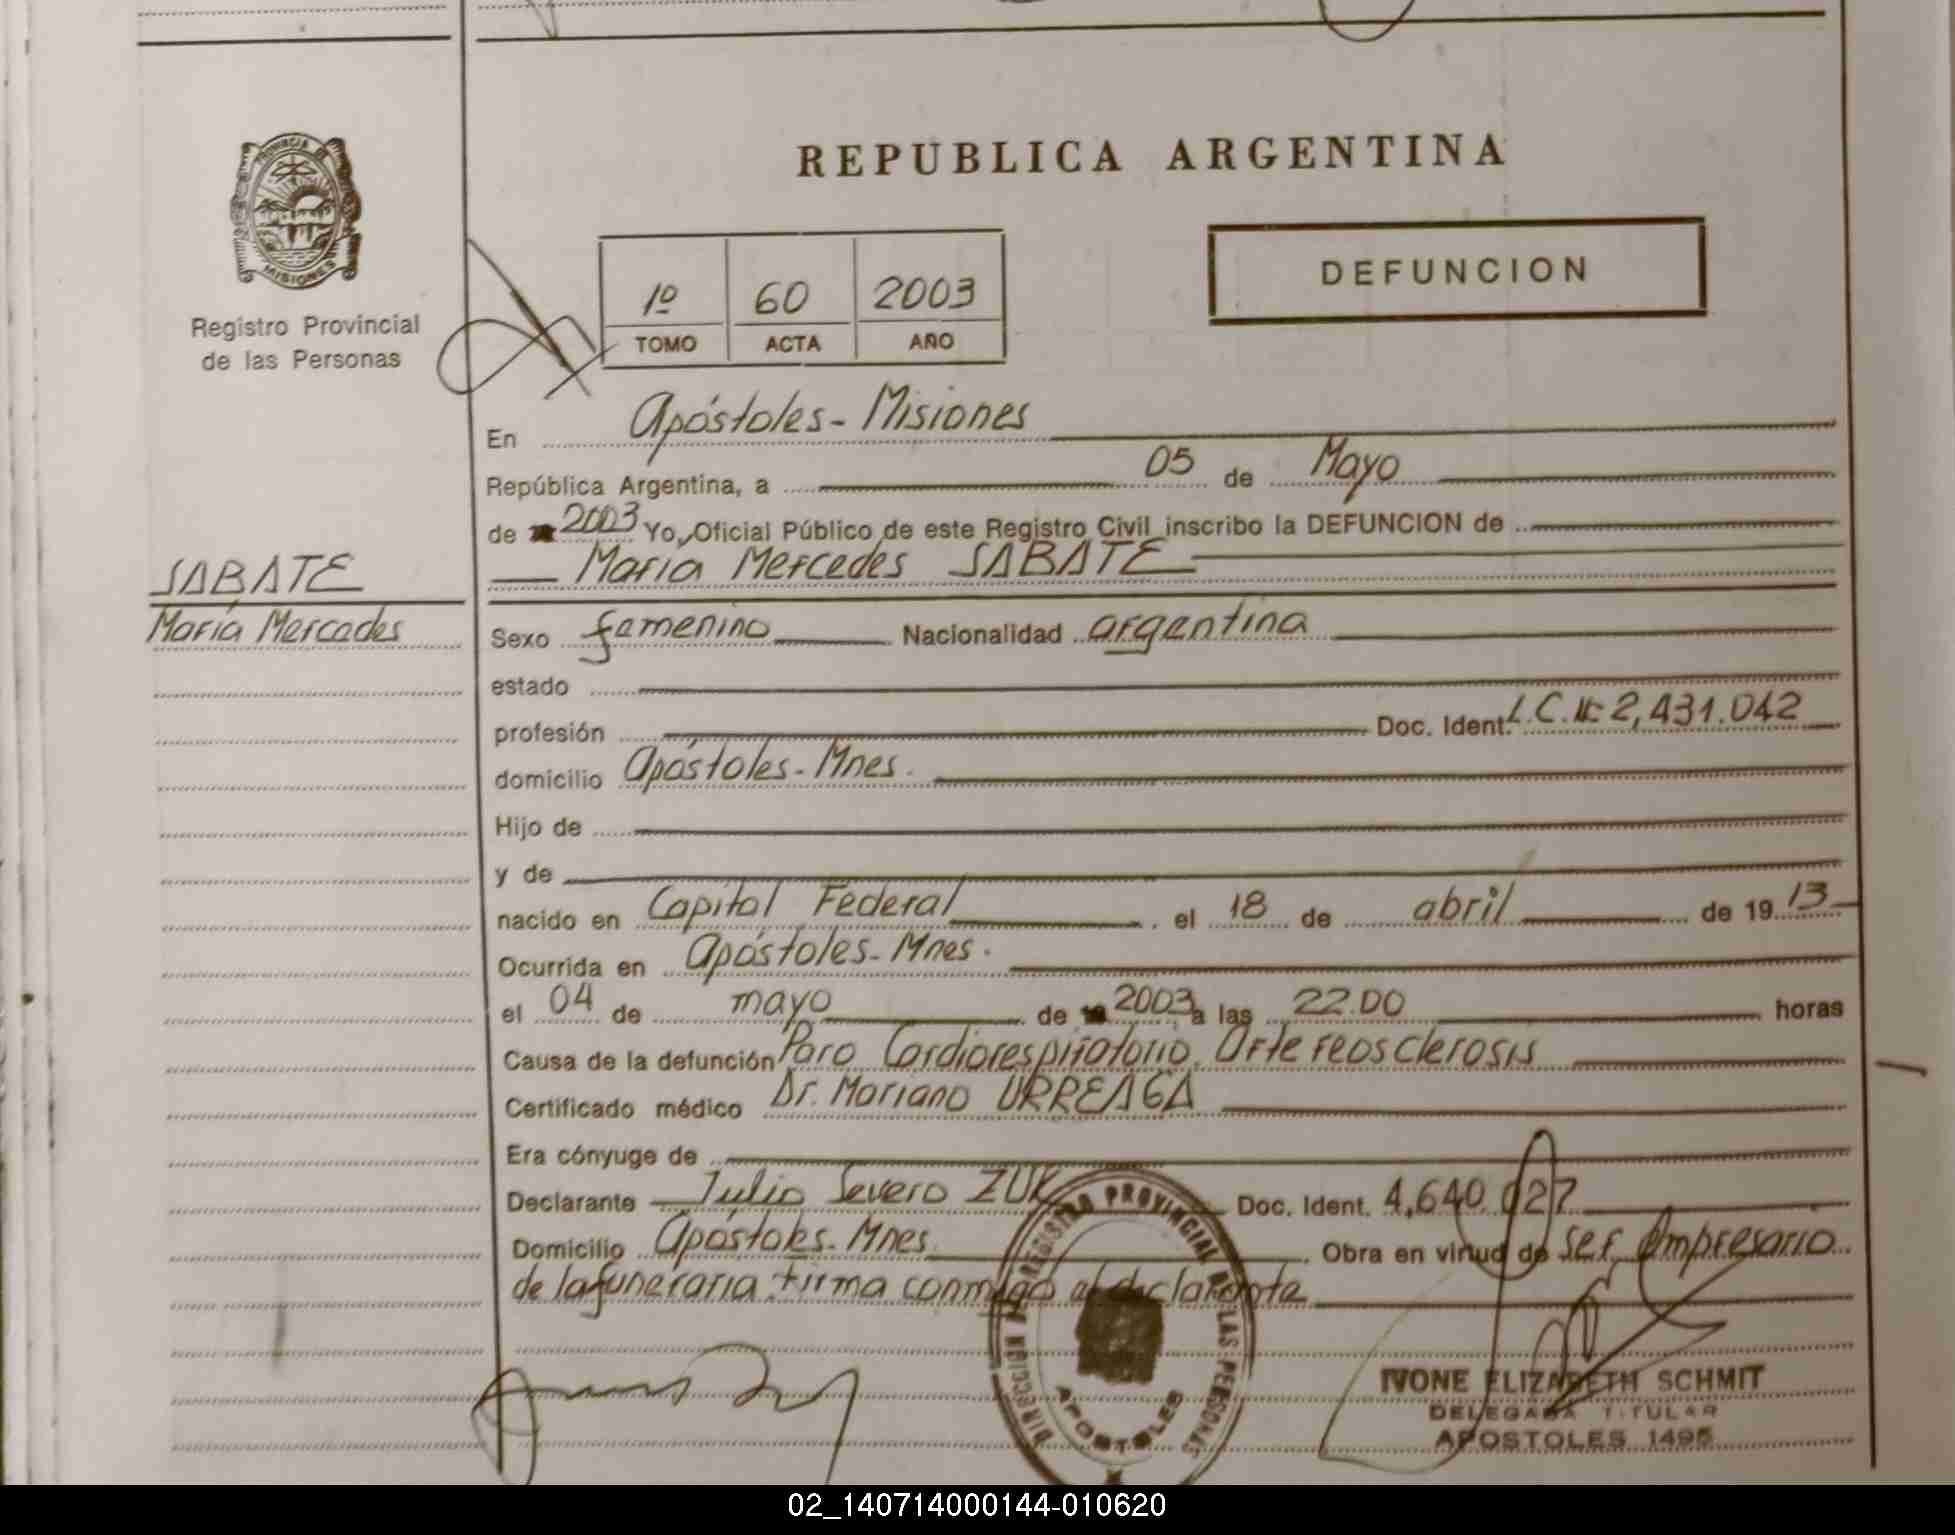 PROVINCIA DE
MISIONES
Registro Provincial
de las Personas
REPUBLICA ARGENTINA
DEFUNCION
1º 60 2003
TOMO ACTA AÑO
En Apóstoles - Misiones
República Argentina, a 05 de Mayo
de 2003 Yo, Oficial Público de este Registro Civil inscribo la DEFUNCION de
María Mercedes SABATE
SABATE
María Mercedes
Sexo femenino Nacionalidad argentina
estado
profesión Doc. Ident. L.C. Nº 2,431.042
domicilio Apóstoles - Mnes.
Hijo de
y de
nacido en Capital Federal, el 18 de abril de 1913
Ocurrida en Apóstoles - Mnes.
el 04 de mayo de 2003 a las 22.00 horas
Causa de la defunción Paro Cardiorespiratorio, Artereosclerosis
Certificado médico Dr. Mariano URREAGA
Era cónyuge de
Declarante Julio Severo ZUK Doc. Ident. 4,640.027
Domicilio Apóstoles - Mnes. Obra en virtud de ser empresario
de la funeraria. firma conmigo el declarante
DIRECCION DE REGISTRO PROVINCIAL DE LAS PERSONAS
APOSTOLES
IVONE ELIZABETH SCHMIT
DELEGADA TITULAR
APOSTOLES 1495
02_140714000144-010620